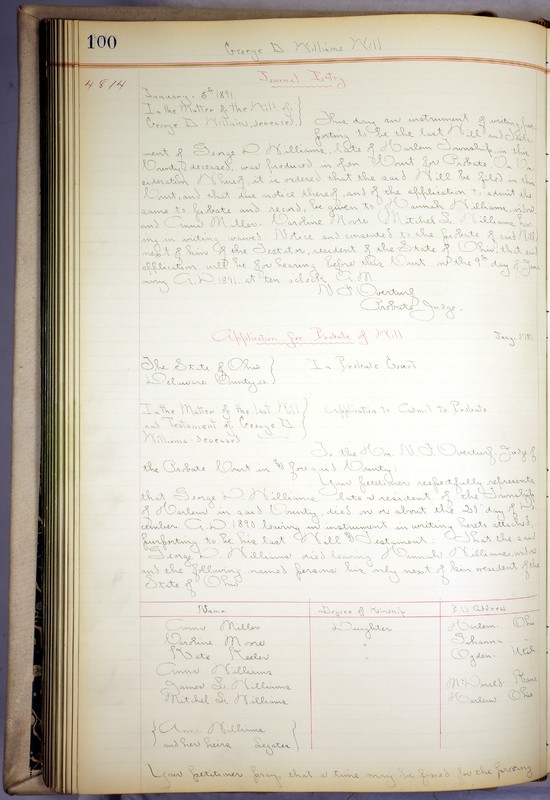 100
George D Williams Will
4814
Journal Entry
January 5th 1891
In the Matter of the Will of
George D Williams, deceased
This day an instrument of writing pur
porting to be the last Will and Testa
ment of George D Williams, late of Harlem Township in this
County, deceased, was produced in open Court for Probate On Con
sideration Whereof, it is ordered that the said Will be filed in this
Court, and that due notice thereof, and of the application to admit the
same to probate and record, be given to Hannah Williams, widow
and Anna Miller. Caroline Moore Mitchel L. Williams hav
ing in writing waived Notice and consented to the probate of said Will
next of kin of the Testator, resident of the State of Ohio, that said
application will be for hearing before this Court on the 9th day of Jan
uary A.D. 1891. at ten o'clock A.M.
N F Overturf
Probate Judge.
Application for Probate of Will
The State of Ohio
Delaware County ss
In Probate Court
In the Matter of the last Will
and Testament of George D.
Williams deceased
Application to Admit to Probate
To the Hon. N. F. Overturf, Judge of
the Probate Court in & for said County:
Your petitioner respectfully represents
that George D Williams late a resident of the Township
of Harlem in said County, died on or about the day of De
cember A.D. 1890 leaving an instrument in writing hereto attached,
purporting to be his last Will & Testament. That the said
George D Williams died leaving Hannah Williams, widow
and the following named persons his only next of kin resident of the
State of Ohio
Name Degree of Kinship P.O. Address
Anna Miller Daughter Harlem Ohio
Caroline Moore " Gahanna "
Kate Keeler " Ogden Utah
Anna Williams
James L. Williams McDonald
Mitchel L. Williams Harlem Ohio
Anna Williams
and her heirs Legatees
Your petitioner pray that a time may be fixed for the proving